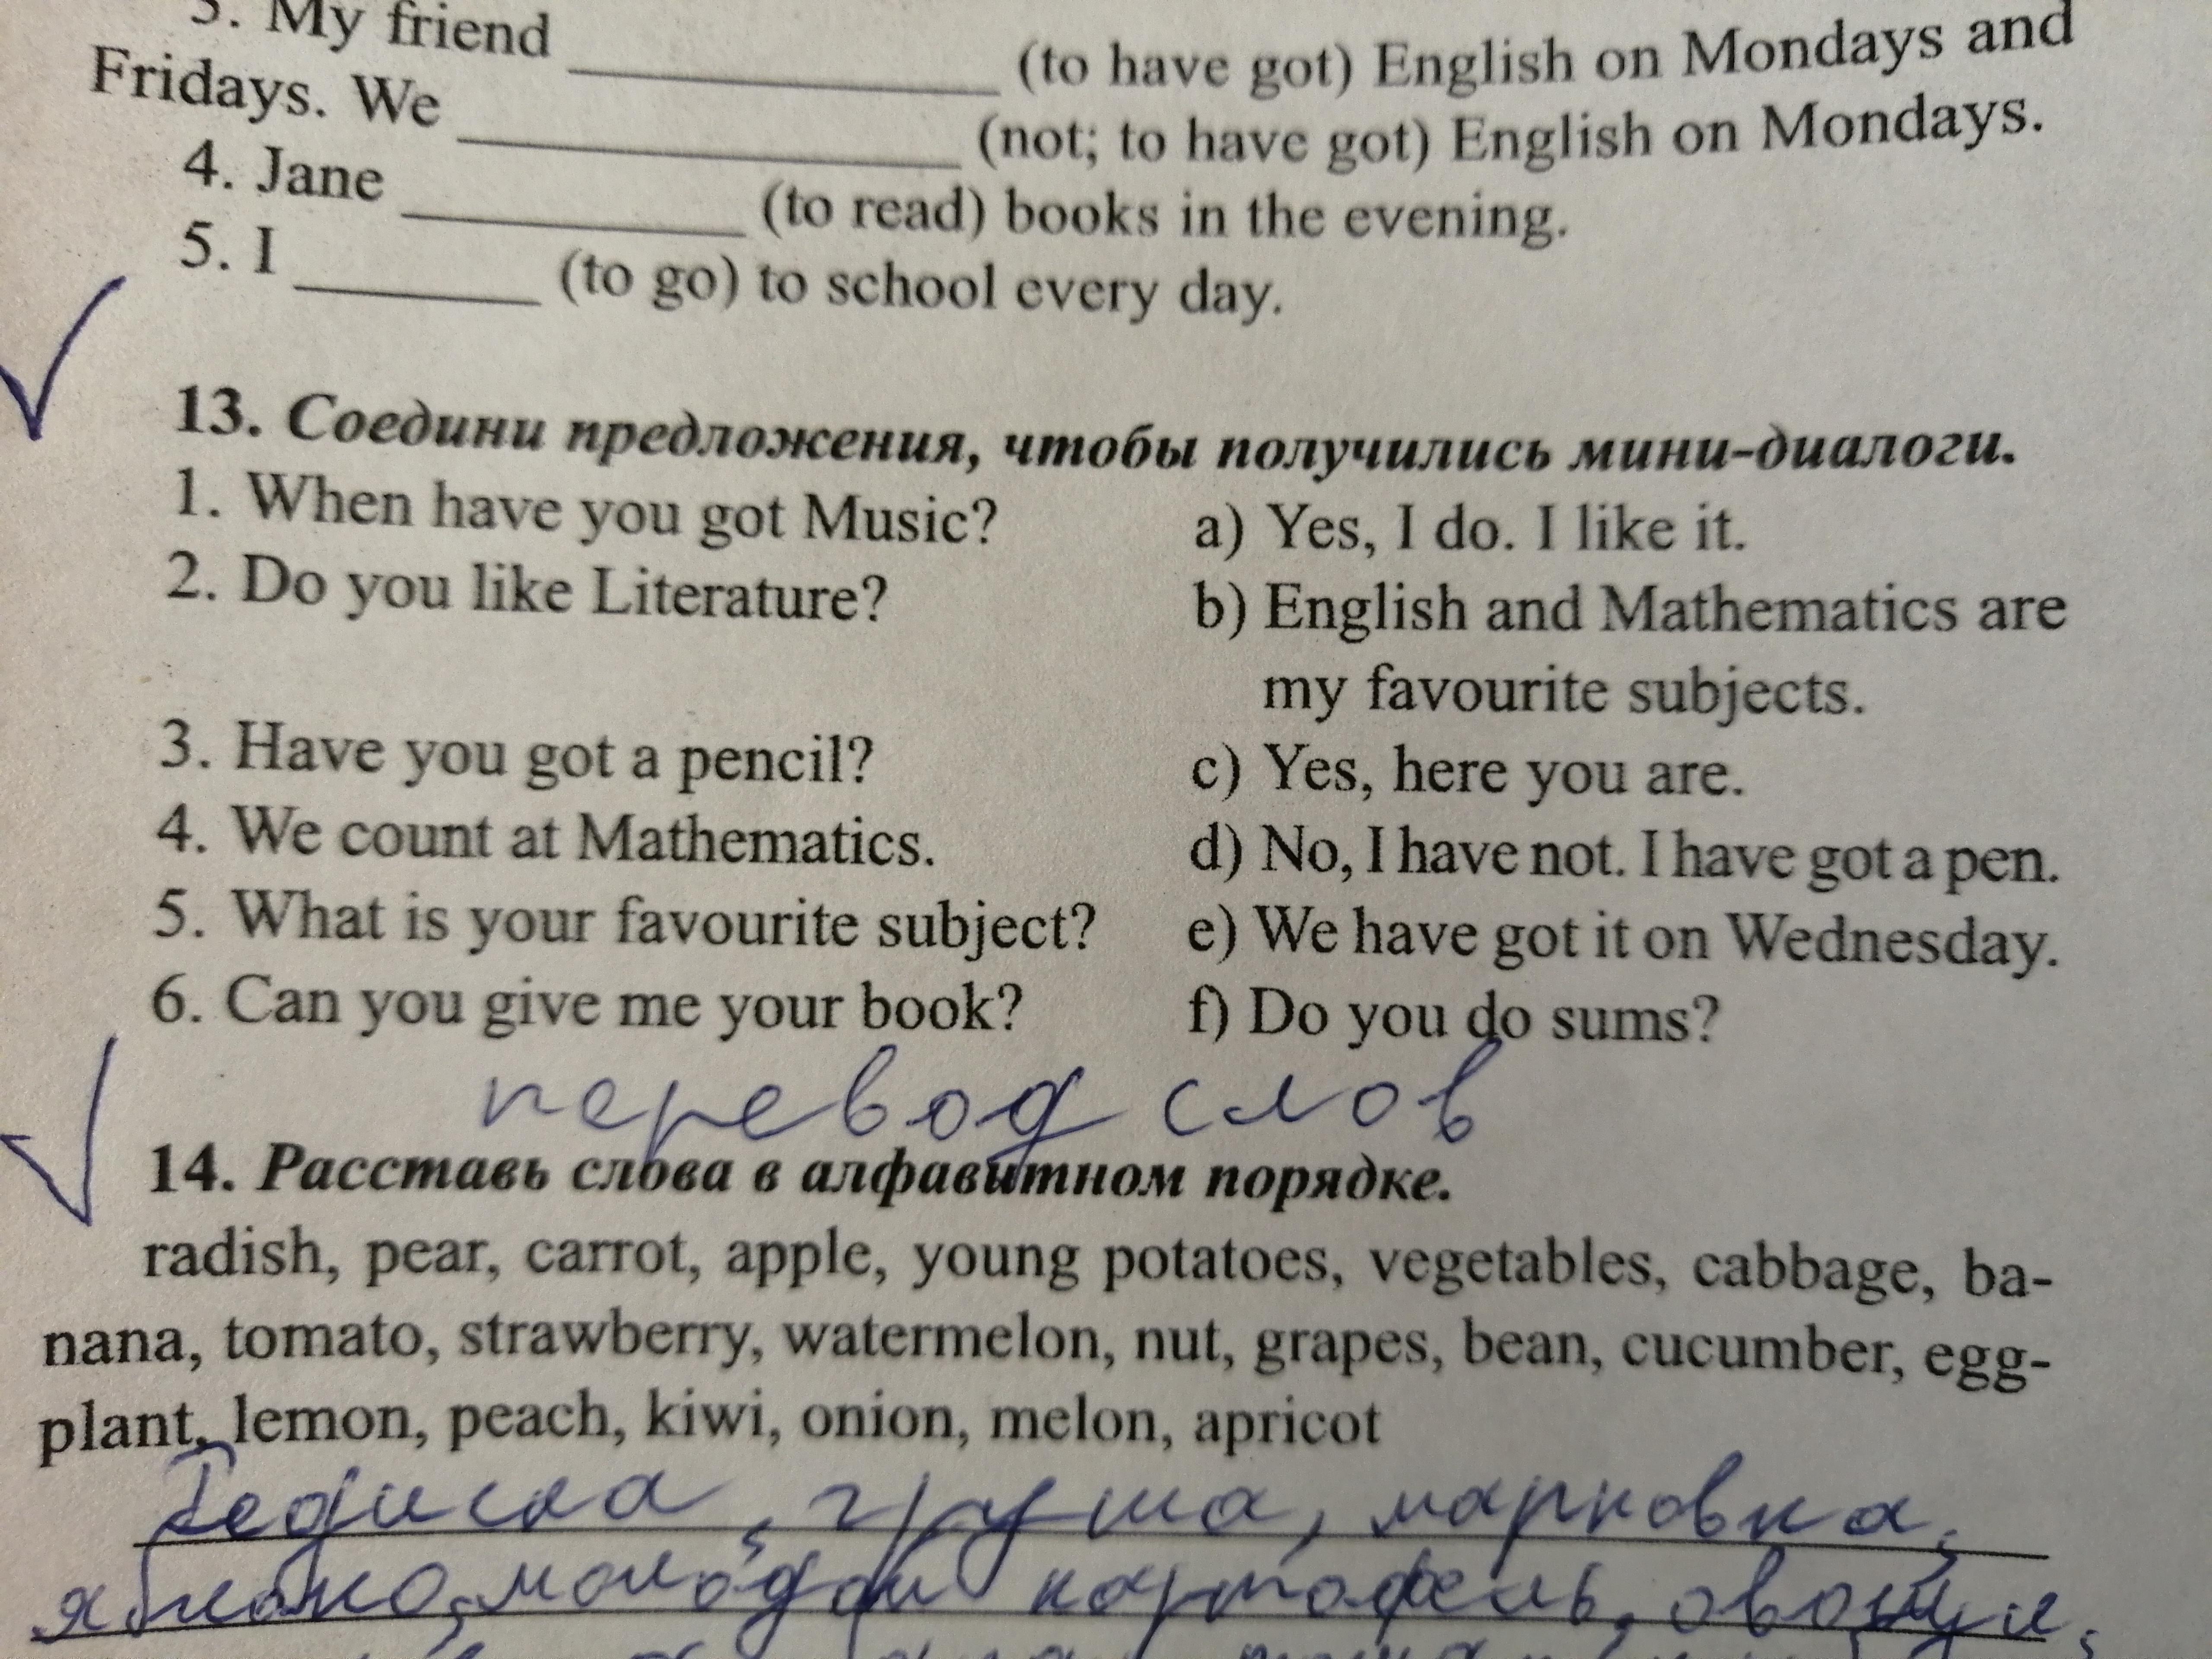 3. My friend ____________ (to have got) English on Mondays and
Fridays. We ______________ (not; to have got) English on Mondays.
4. Jane __________ (to read) books in the evening.
5. I _______ (to go) to school every day.
13. Соедини предложения, чтобы получились мини-диалоги.
1. When have you got Music? a) Yes, I do. I like it.
2. Do you like Literature? b) English and Mathematics are
my favourite subjects.
3. Have you got a pencil? c) Yes, here you are.
4. We count at Mathematics. d) No, I have not. I have got a pen.
5. What is your favourite subject? e) We have got it on Wednesday.
6. Can you give me your book? f) Do you do sums?
перевод слов
14. Расставь слова в алфавитном порядке.
radish, pear, carrot, apple, young potatoes, vegetables, cabbage, ba-
nana, tomato, strawberry, watermelon, nut, grapes, bean, cucumber, egg-
plant, lemon, peach, kiwi, onion, melon, apricot
Редиска, груша, марковка,
яблоко, молодой картофель, овощи,